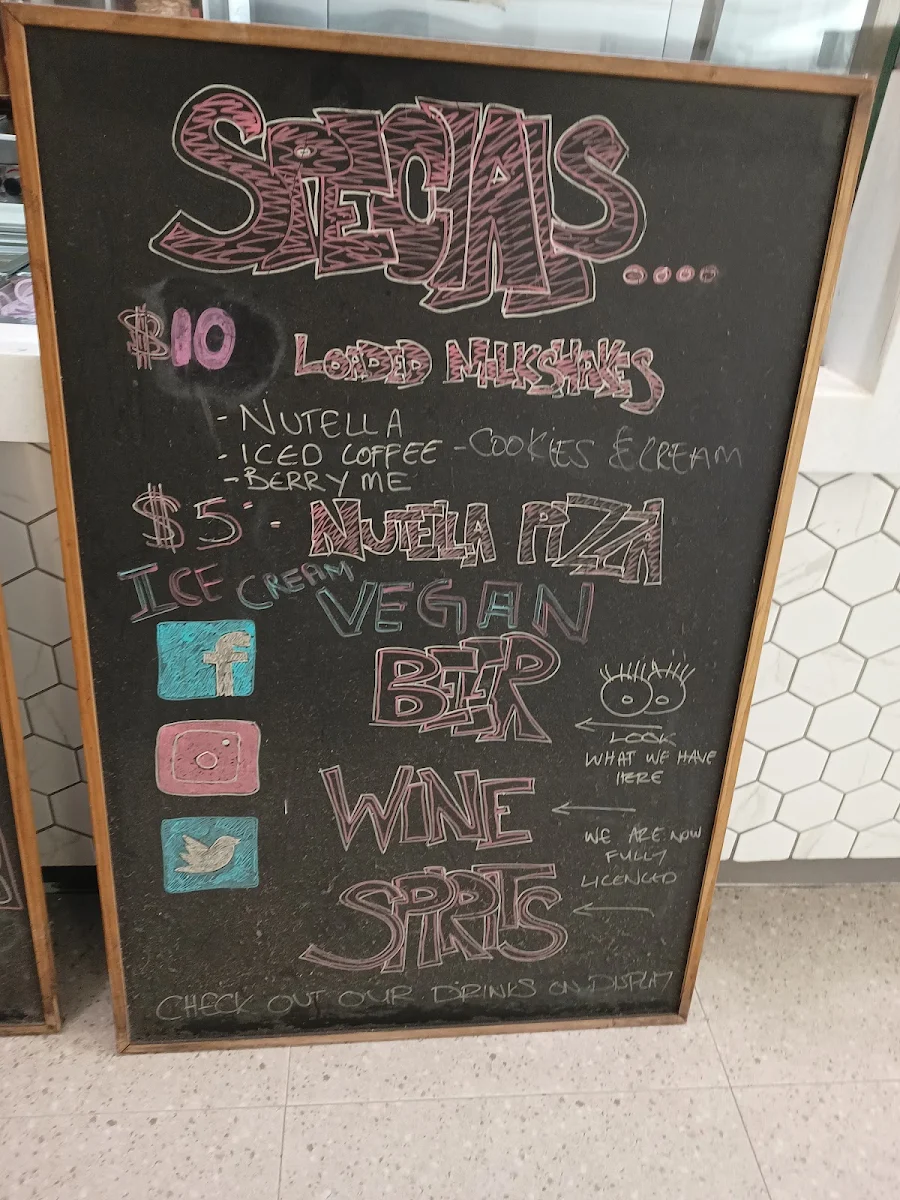 SPECIALS....
$10 LOADED MILKSHAKES
- NUTELLA
- ICED COFFEE - COOKIES & CREAM
- BERRY ME
$5 - NUTELLA PIZZA
ICE CREAM VEGAN
f
BEER
LOOK
WHAT WE HAVE
HERE
WINE
WE ARE NOW
FULLY
LICENCED
SPIRITS
CHECK OUT OUR DRINKS ON DISPLAY